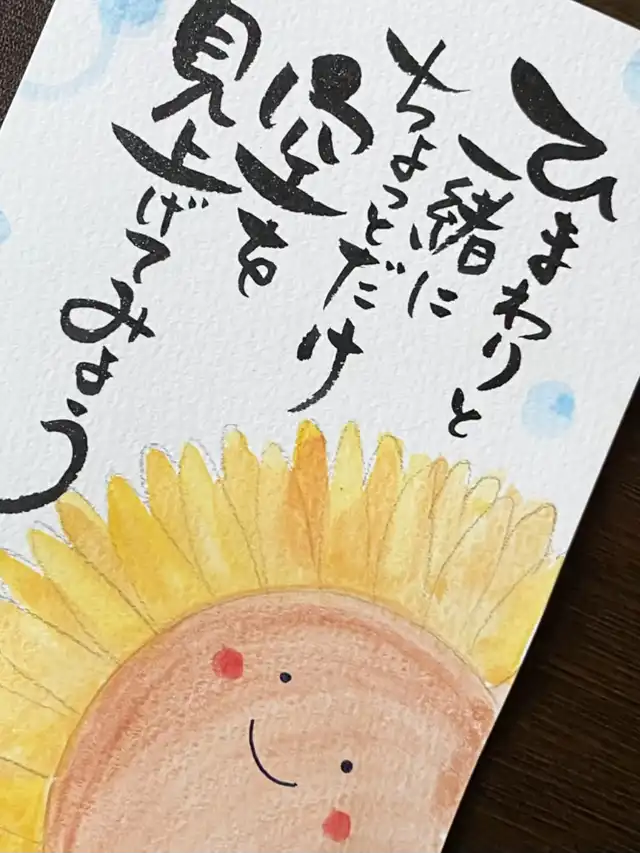 ひまわりと
一緒に
ちょっとだけ
空を
見上げてみよう